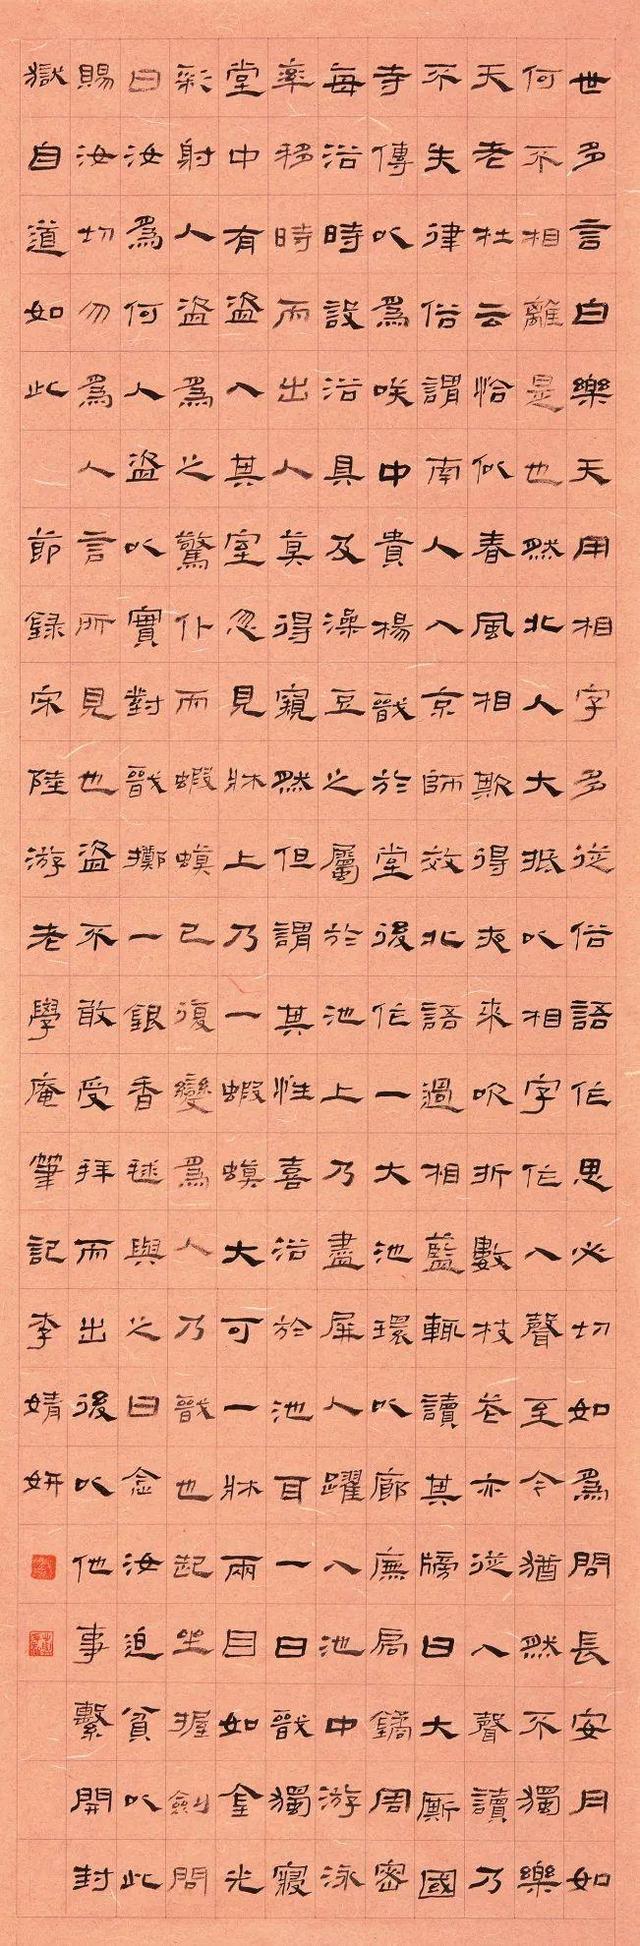 世多言白樂天用相字多從俗語作思必切如爲問長安月如
何不相離是也然北人大抵以相字作入聲至今猶然不獨樂
天老杜云恰似春風相欺得夜來吹折數枝花亦從入聲讀乃
不失律俗謂南人入京師效北語過相藍輒讀其牓曰大厮國
寺傳以爲咲中貴楊戩於堂後作一大池環以廊廡扃鐍周密
每浴時設浴具及澡豆之屬於池上乃盡屏人躍入池中游泳
率移時而出人莫得窺然但謂其性喜浴於池耳一日戩獨寢
堂中有盜入其室忽見牀上乃一蝦蟆大可一牀兩目如金光
彩射人盜爲之驚仆而蝦蟆已復變爲人乃戩也起坐握劍問
曰汝爲何人盜以實對戩擲一銀香毬與之曰念汝迫貧以此
賜汝切勿爲人言所見也盜不敢受拜而出後以他事繫開封
獄自道如此 節録宋陸游老學庵筆記李婧妍